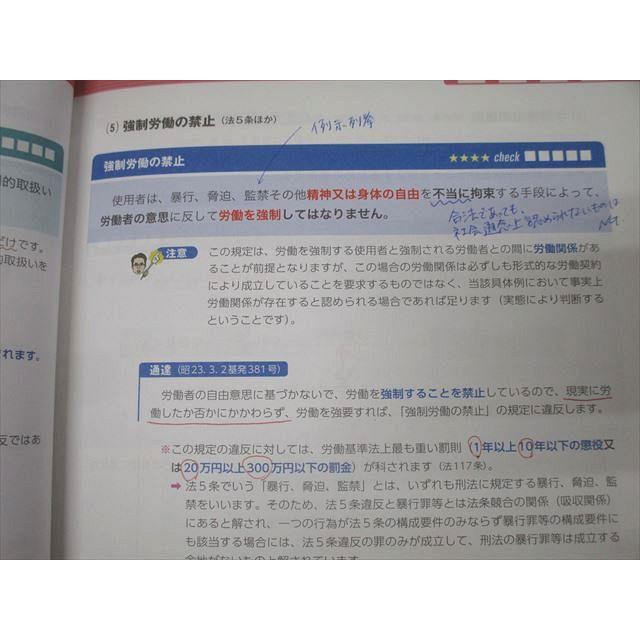 (5) 強制労働の禁止（法5条ほか）
例示列挙
強制労働の禁止
★★★★ check
使用者は、暴行、脅迫、監禁その他精神又は身体の自由を不当に拘束する手段によって、
労働者の意思に反して労働を強制してはなりません。
合法であっても、
社会通念上認められないものは
注意
この規定は、労働を強制する使用者と強制される労働者との間に労働関係があ
ることが前提となりますが、この場合の労働関係は必ずしも形式的な労働契約
により成立していることを要求するものではなく、当該具体例において事実上
労働関係が存在すると認められる場合であれば足ります（実態により判断する
ということです）。
通達（昭23.3.2基発381号）
労働者の自由意思に基づかないで、労働を強制することを禁止しているので、現実に労
働したか否かにかかわらず、労働を強要すれば、「強制労働の禁止」の規定に違反します。
※この規定の違反に対しては、労働基準法上最も重い罰則（1年以上10年以下の懲役又
は20万円以上300万円以下の罰金）が科されます（法117条）。
➡ 法5条でいう「暴行、脅迫、監禁」とは、いずれも刑法に規定する暴行、脅迫、監
禁をいいます。そのため、法5条違反と暴行罪等とは法条競合の関係（吸収関係）
にあると解され、一つの行為が法5条の構成要件のみならず暴行罪等の構成要件に
も該当する場合には、法5条違反の罪のみが成立して、刑法の暴行罪等は成立する
余地がないものと解されています。
的取扱い
だけです。
的取扱いを
れます。
反ではあ